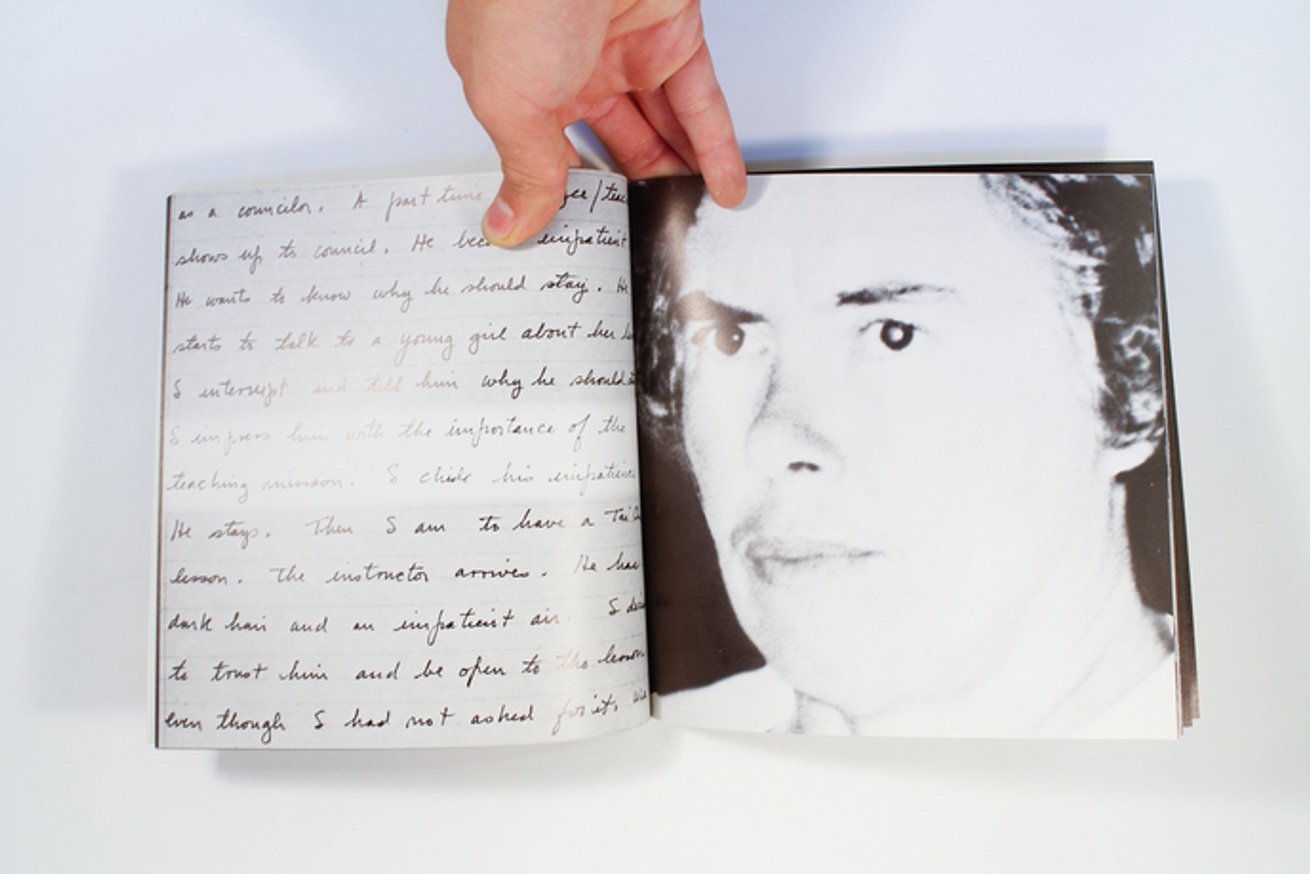 as a councilor. A part time
shows up to council. He impatient
He wants to know why he should stay. He
starts to talk to a young girl about her
I interrupt and tell him why he should
I impress him with the importance of the
teaching mission. I chide his impatience
He stays. Then I am to have a Tai
lesson. The instructor arrives. He has
dark hair and an impatient air. I
to trust him and be open to the lesson
even though I had not asked for it.